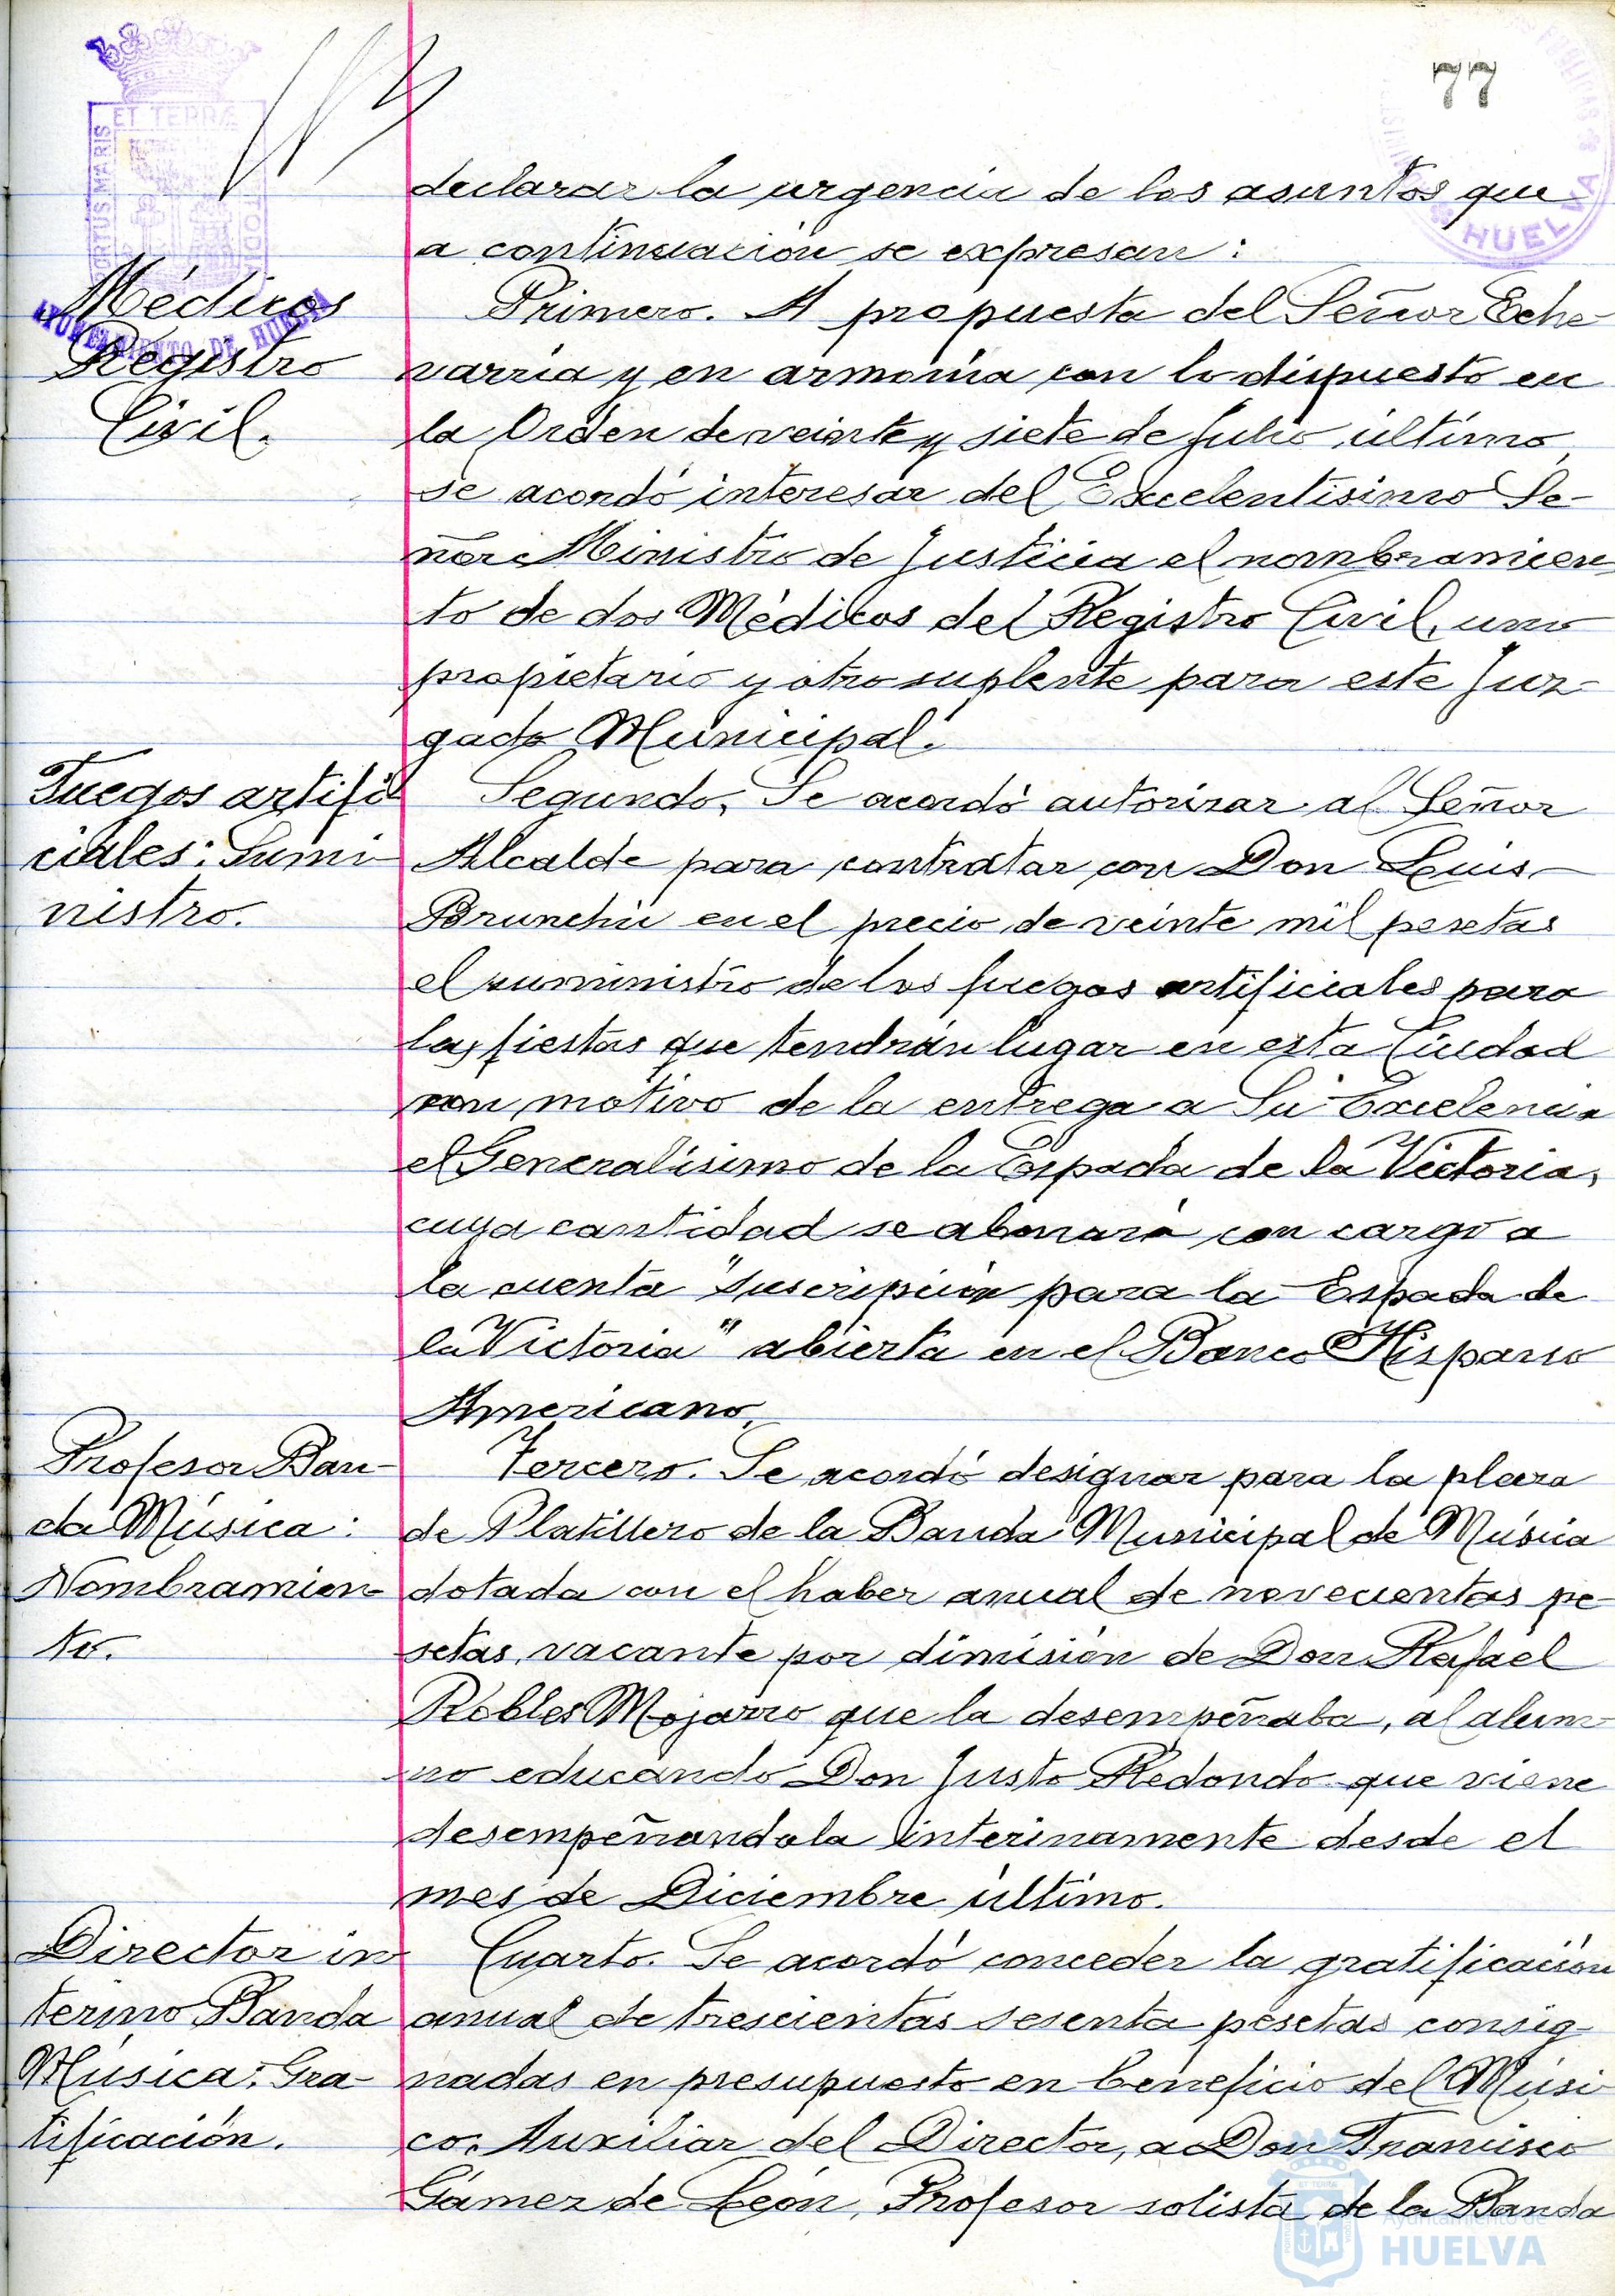 77
declarar la urgencia de los asuntos que
a continuación se expresan:
Médicos
Registro
Civil.
Primero. A propuesta del Señor Eche-
varria y en armonia con lo dispuesto en
la Orden de veinte y siete de Julio último,
se acordó interesar del Excelentisimo Se-
ñor Ministro de Justicia el nombramien-
to de dos Médicos del Registro Civil, uno
propietario y otro suplente para este Juz-
gado Municipal.
Fuegos artifi-
ciales: Sumi-
nistro.
Segundo. Se acordó autorizar al Señor
Alcalde para contratar con Don Luis
Brunchú en el precio de veinte mil pesetas
el suministro de los fuegos artificiales para
las fiestas que tendrán lugar en esta Ciudad
con motivo de la entrega a Su Excelencia
el Generalisimo de la Espada de la Victoria,
cuya cantidad se abonará con cargo a
la cuenta "Suscripción para la Espada de
la Victoria" abierta en el Banco Hispano
Americano.
Profesor Ban-
da Música:
Nombramien-
to.
Tercero. Se acordó designar para la plaza
de Platillero de la Banda Municipal de Música
dotada con el haber anual de novecientas pe-
setas, vacante por dimisión de Don Rafael
Robles Mojarro que la desempeñaba, al alum-
no educando Don Justo Redondo que viene
desempeñandola interinamente desde el
mes de Diciembre último.
Director in
terino Banda
Música: Gra-
tificación.
Cuarto. Se acordó conceder la gratificación
anual de trescientas sesenta pesetas consig-
nadas en presupuesto en beneficio del Músi-
co, Auxiliar del Director, a Don Francisco
Gámez de León, Profesor solista de la Banda
ET TERRÆ
PORTUS MARIS
AYUNTAMIENTO DE HUELVA
HUELVA
Ayuntamiento de
HUELVA